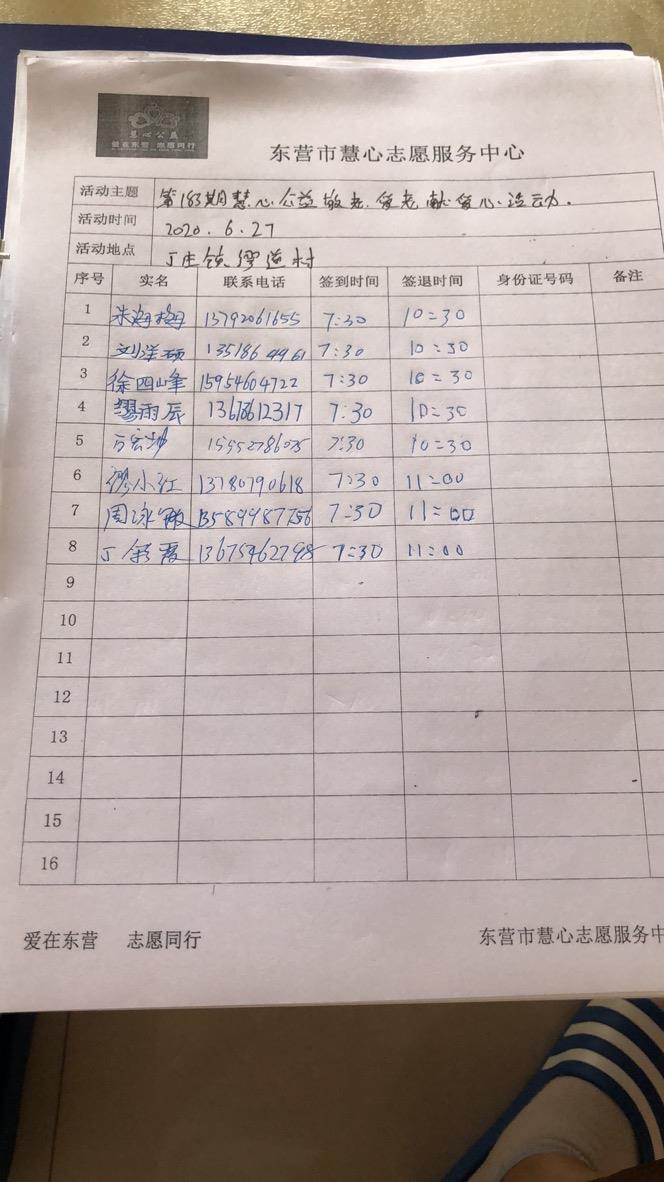 慧心公益
爱在东营 志愿同行
东营市慧心志愿服务中心
活动主题 第183期慧心公益敬老.爱老献爱心活动.
活动时间 2020.6.27
活动地点 丁庄镇缪道村
序号 实名 联系电话 签到时间 签退时间 身份证号码 备注
1 朱海梅 13792061655 7:30 10:30
2 刘洋硕 13518649961 7:30 10:30
3 徐四峰 15954604722 7:30 10:30
4 雨辰 13678612317 7:30 10:30
5 15552786075 7:30 10:30
6 缪小红 13780790618 7:30 11:00
7 周泳敏 13589987756 7:30 11:00
8 丁彩霞 13675462798 7:30 11:00
9
10
11
12
13
14
15
16
爱在东营 志愿同行 东营市慧心志愿服务中